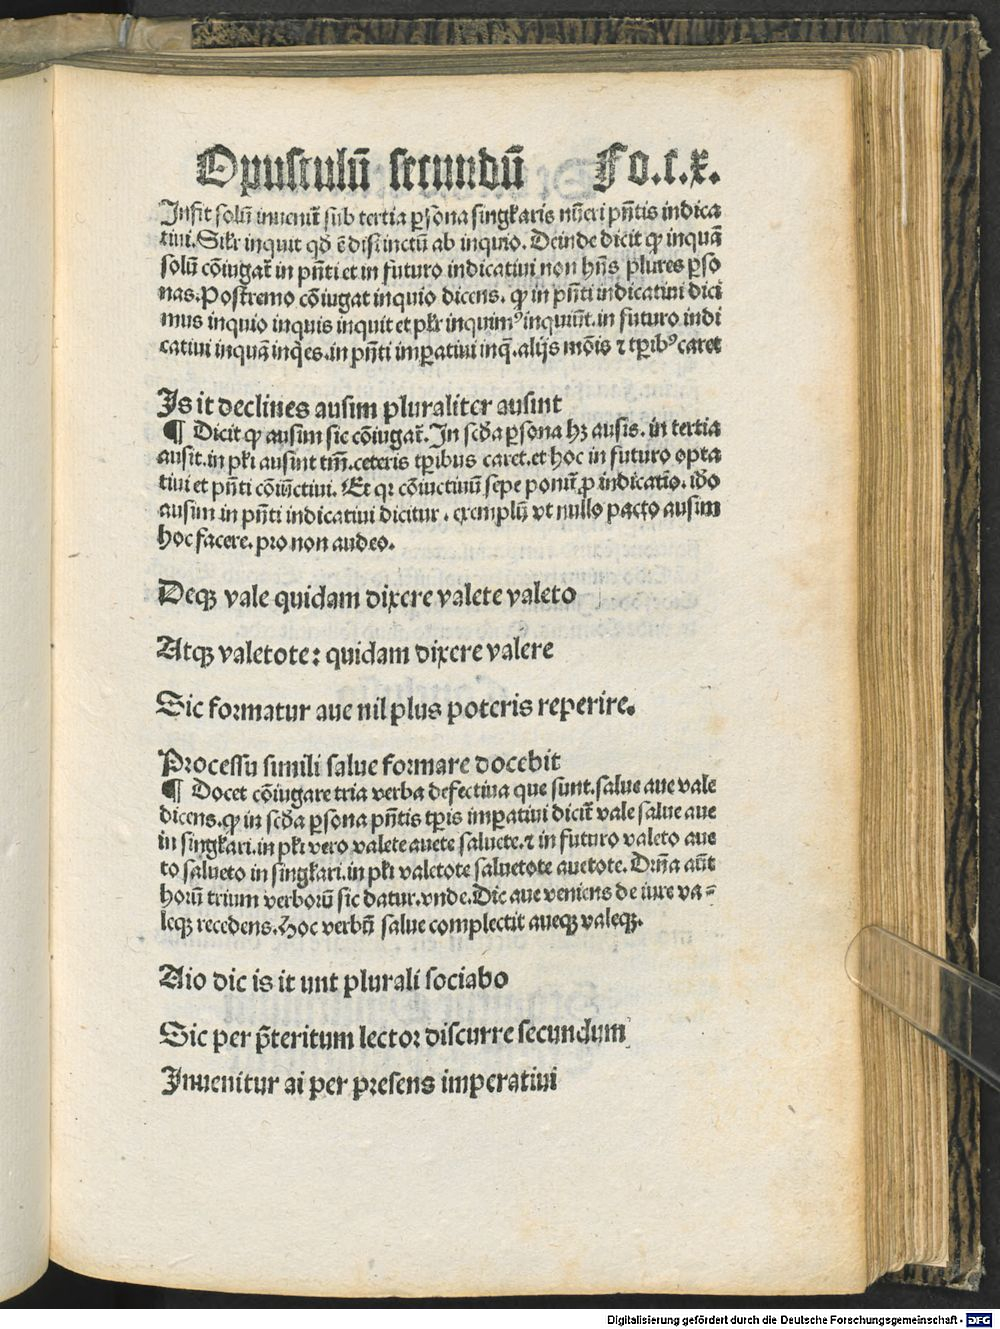 Opusculū secundū Fo.c.x.
Infit solū inueniť sub tertia ꝑsona singƚaris nūeri pn̄tis indica
tiui. Siƚr inquit qđ ē distinctū ab inquio. Deinde dicit ꝙ inquā
solū cōiugať in pn̄ti et in futuro indicatiui non hn̄s plures ꝑso
nas. Postremo cōiugat inquio dicens. ꝙ in pn̄ti indicatiui dici
mus inquio inquis inquit et pƚr inquimꝰ inquiūt. in futuro indi
catiui inquā inq̇es. in pn̄ti imꝑatiui inq̄. alijs mōis ⁊ tꝑibꝰ caret
Is it declines ausim pluraliter ausint
¶ Dicit ꝙ ausim sic cōiugať. In scđa ꝑsona hꝫ ausis. in tertia
ausit. in pƚi ausint tm̄. ceteris tꝑibus caret. et hoc in futuro opta
tiui et pn̄ti cōiūctiui. Et qꝛ cōiuctiuū sepe poniť ꝓ indicatiō. iđo
ausim in pn̄ti indicatiui dicitur. exemplū vt nullo pacto ausim
hoc facere. pro non audeo.
Deqꝫ vale quidam dixere valete valeto
Atqꝫ valetote: quidam dixere valere
Sic formatur aue nil plus poteris reperire.
Processu simili salue formare docebit
¶ Docet cōiugare tria verba defectiua que sunt. salue aue vale
dicens. ꝙ in scđa ꝑsona pn̄tis tꝑis imꝑatiui diciť vale salue aue
in singƚari. in pƚi vero valete auete saluete. ⁊ in futuro valeto aue
to salueto in singƚari. in pƚi valetote saluetote auetote. Drn̄a aūt
horū trium verborū sic datur. vnde. Dic aue veniens de iure va⸗
leqꝫ recedens. Hoc verbū salue complectit aueqꝫ valeqꝫ.
Aio dic is it unt plurali sociabo
Sic per p̄teritum lector discurre secundum
Inuenitur ai per presens imperatiui
Digitalisierung gefördert durch die Deutsche Forschungsgemeinschaft - DFG